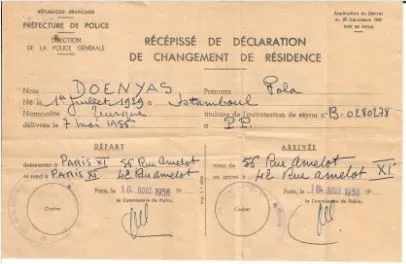 RÉPUBLIQUE FRANÇAISE
PRÉFECTURE DE POLICE
DIRECTION
DE LA POLICE GÉNÉRALE
Application du Décret
RÉCÉPISSÉ DE DÉCLARATION
DE CHANGEMENT DE RÉSIDENCE
Nom DOENYAS Prénoms Pola
Né le 1er juillet 1929 à Istamboul
Nationalité Turque titulaire de l'autorisation de séjour n° B. 0280278
délivrée le 7 mai 1955 à P.P.
DÉPART
demeurant à PARIS XI 55 Rue Amelot
se rend à PARIS XI 42 Rue Amelot
Paris, le 18 AOUT 1958 19
Le Commissaire de Police,
Cachet
ARRIVÉE
venant de 55 Rue Amelot
est arrivé à 42 Rue Amelot XIe
Paris, le 18 AOUT 1958 19
Le Commissaire de Police,
Cachet